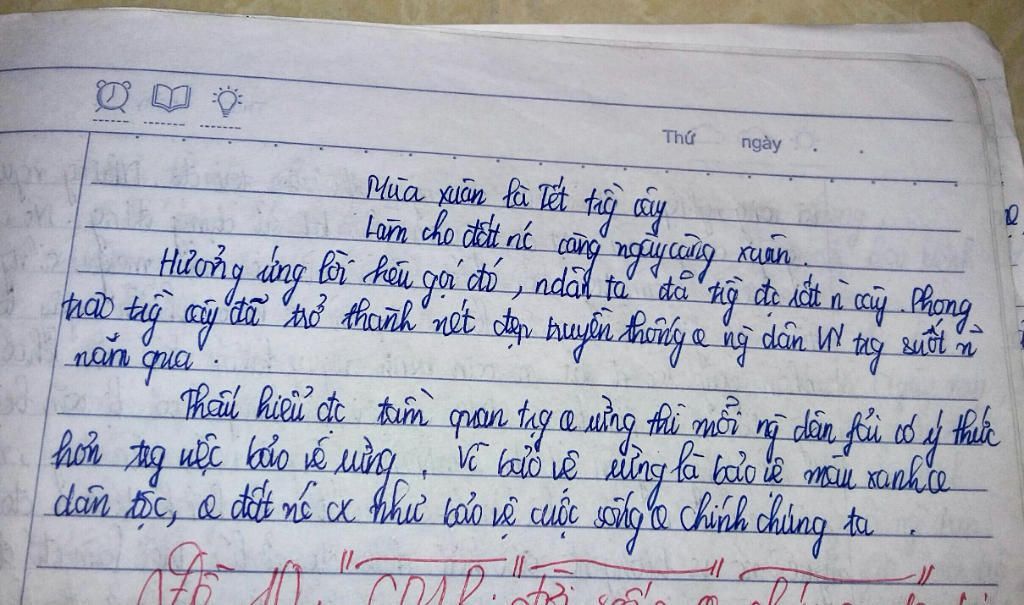 Thứ ngày
Mùa xuân là Tết tr͞g cây
Làm cho đất nc càng ngày càng xuân.
Hưởng ứng lời kêu gọi đó, ndân ta đã tr͞g đc rất ǹ cây. Phong
trào tr͞g cây đã trở thành nét đẹp truyền thống @ ng dân VN trg suốt ǹ
năm qua.
Thấu hiểu đc tầm quan trg @ rừng thì mỗi ng dân fải có ý thức
hơn trg việc bảo vệ rừng. Vì bảo vệ rừng là bảo vệ màu xanh @
dân tộc, @ đất nc cx như bảo vệ cuộc sống @ chính chúng ta.